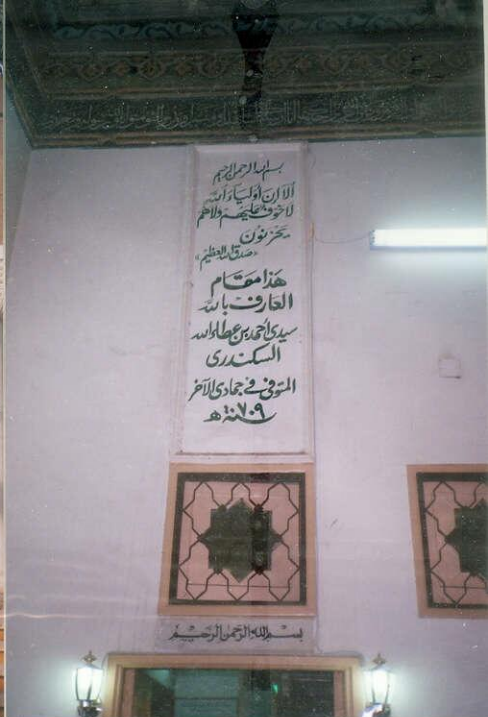 بسم الله الرحمن الرحيم
ألا إن أولياء الله
لا خوف عليهم ولا هم
يحزنون
«صدق الله العظيم»
هذا مقام
العارف بالله
سيدى أحمد بن عطاء الله
السكندرى
المتوفى في جمادى الآخر
سنة ٧٠٩ هـ
بسم الله الرحمن الرحيم